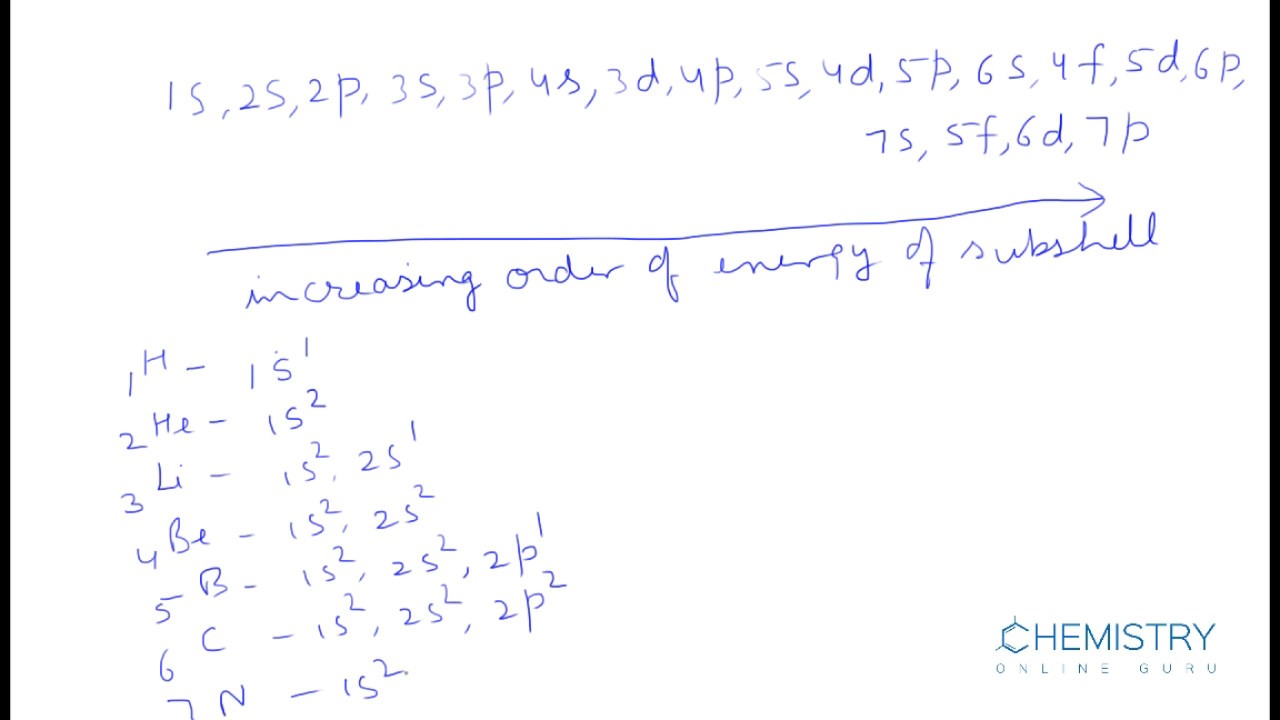 1s, 2s, 2p, 3s, 3p, 4s, 3d, 4p, 5s, 4d, 5p, 6s, 4f, 5d, 6p,
7s, 5f, 6d, 7p
increasing order of energy of subshell
₁H - 1s¹
₂He - 1s²
₃Li - 1s², 2s¹
₄Be - 1s², 2s²
₅B - 1s², 2s², 2p¹
₆C - 1s², 2s², 2p²
₇N - 1s²
CHEMISTRY
ONLINE GURU